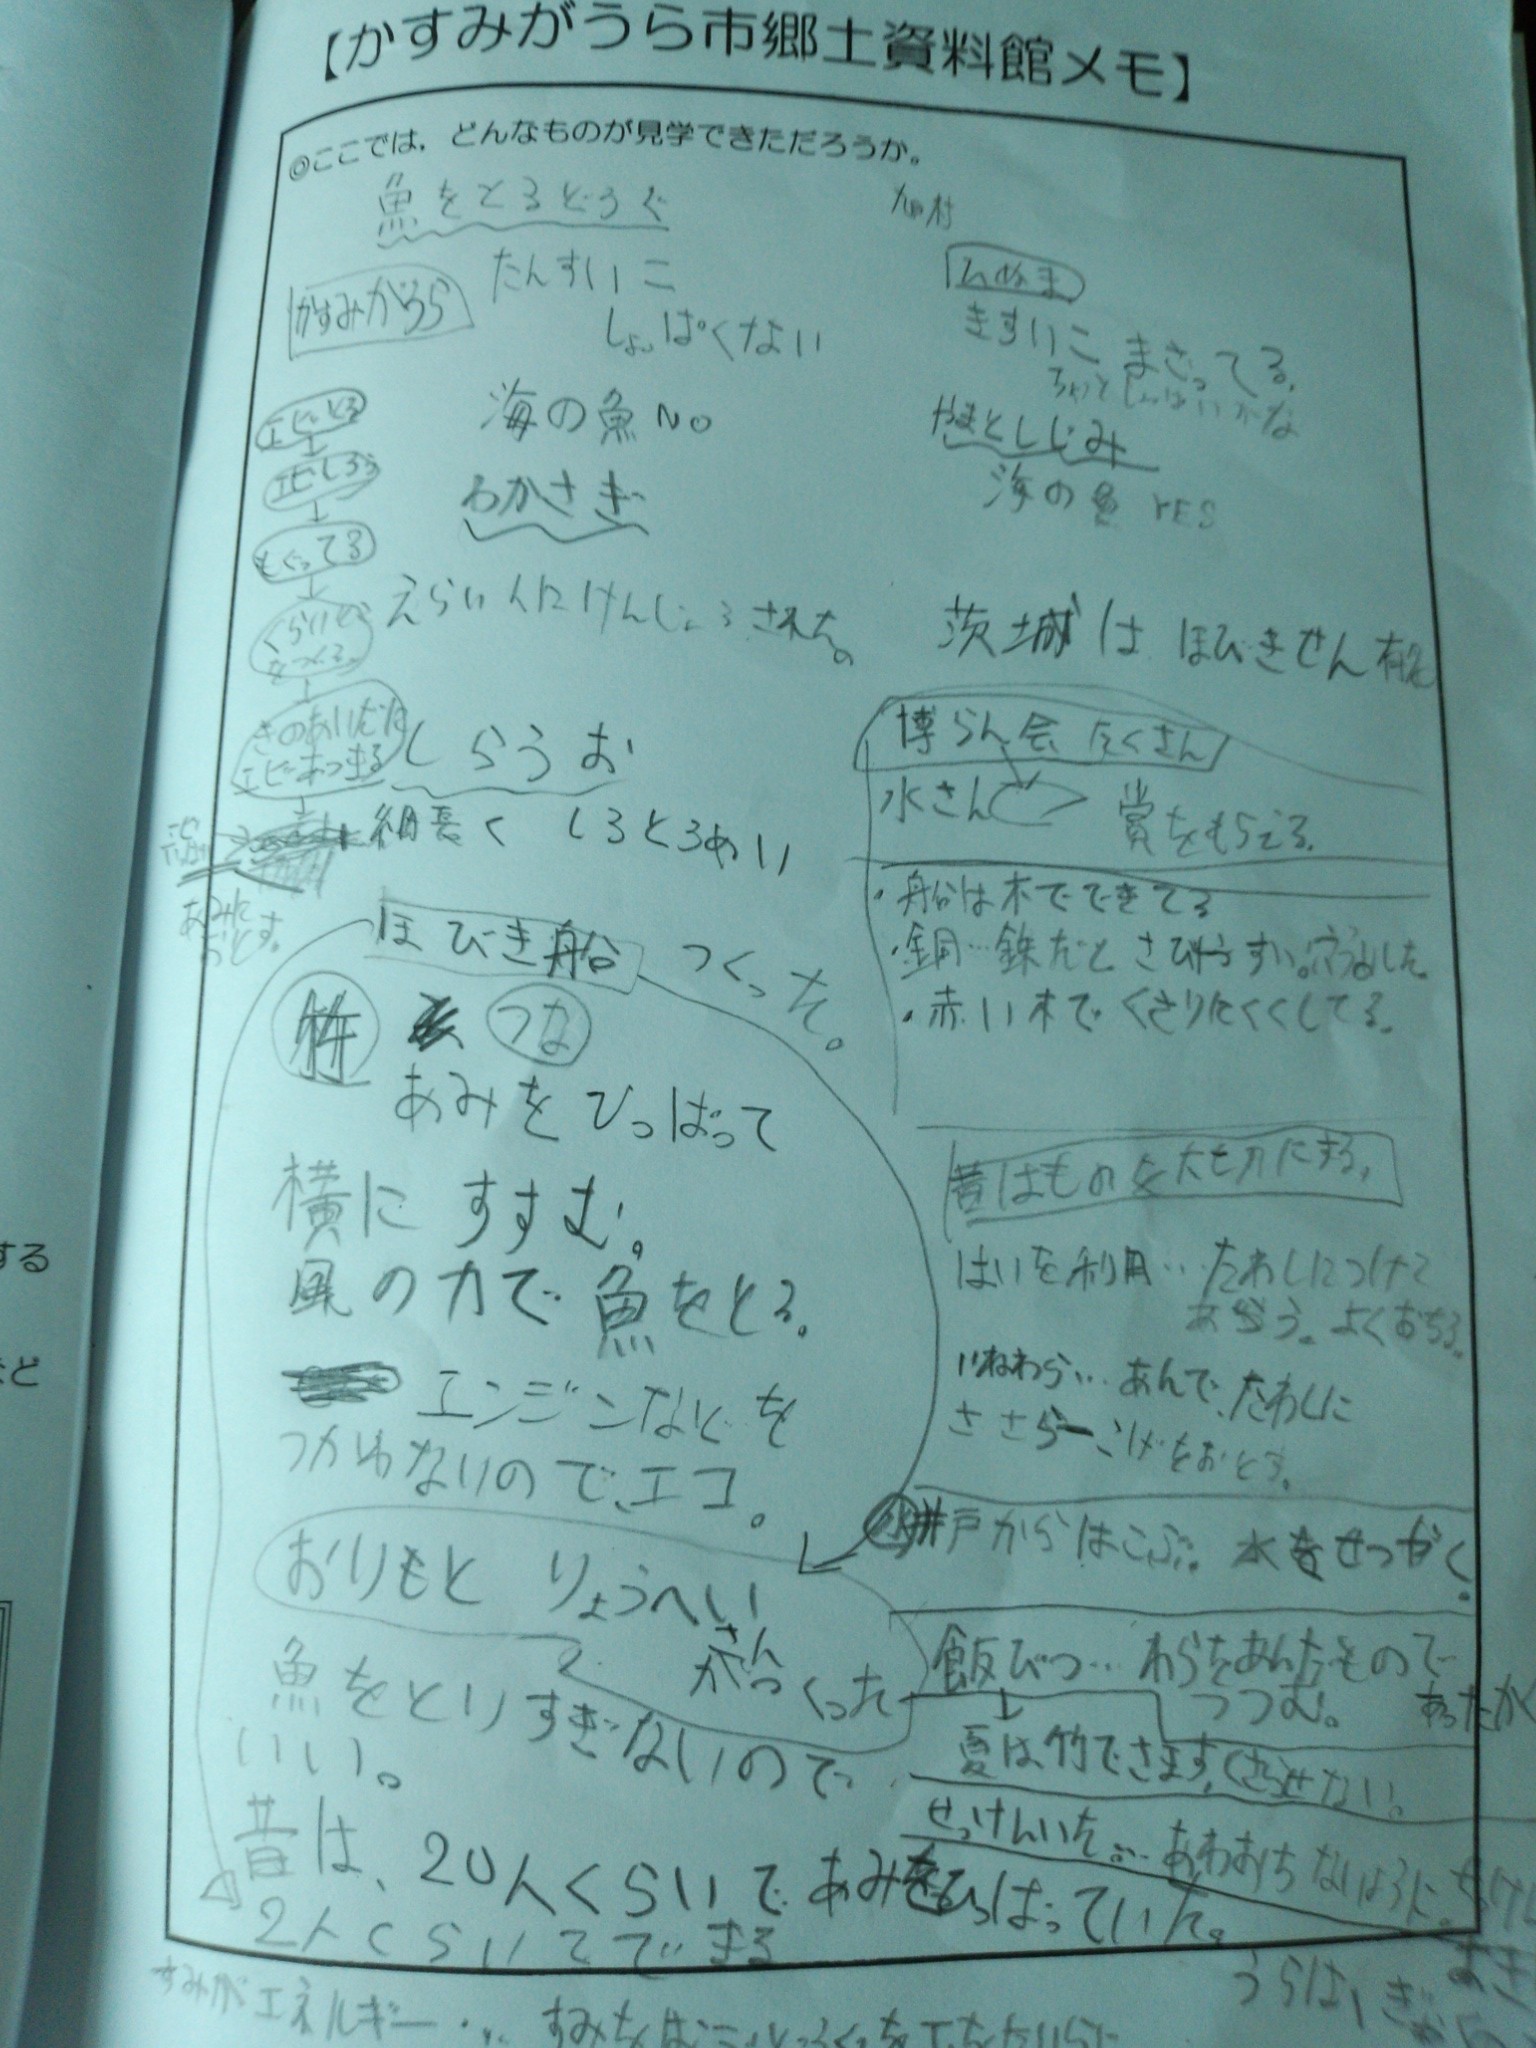 【かすみがうら市郷土資料館メモ】
◎ここでは，どんなものが見学できただろうか。
魚をとるどうぐ
かすみがうら
たんすいこ
しょっぱくない
海の魚NO
わかさぎ
えらい人にけんじょうされた。
エビとる
もぐってる
きのあいだに
エビあつまる
あみに
おとす。
しらうお
細長く しろとうめい
ほびき船 つくった。
つな
あみをひっぱって
横にすすむ。
風の力で魚をとる。
エンジンなどを
つかわないので、エコ。
おりもと りょうへい
さん
がつくった
魚をとりすぎないので
いい。
昔は、20人くらいであみをひっぱっていた。
2人くらいでできる
旭村
ひぬま
きすいこ まざってる。
ちょっとしょっぱいかな
やまとしじみ
海の魚 YES
茨城は ほびきせん 有名
博らん会 たくさん
水さん
賞をもらえる。
・船は木でできてる
・銅…鉄だと さびやすい。
・赤い木で くさりにくくしてる。
昔はものを大切にする。
はいを利用…たわしにつけて
あらう。よくおちる。
いねわら…あんで、たわしに
ささらーこげをおとす。
水 井戸からはこぶ。 水をせつやく。
飯びつ…わらをあんだものでつつむ。
夏は竹でさます。くさらせない。
せっけんいた…あわおちないように。
うらは、
エネルギー…